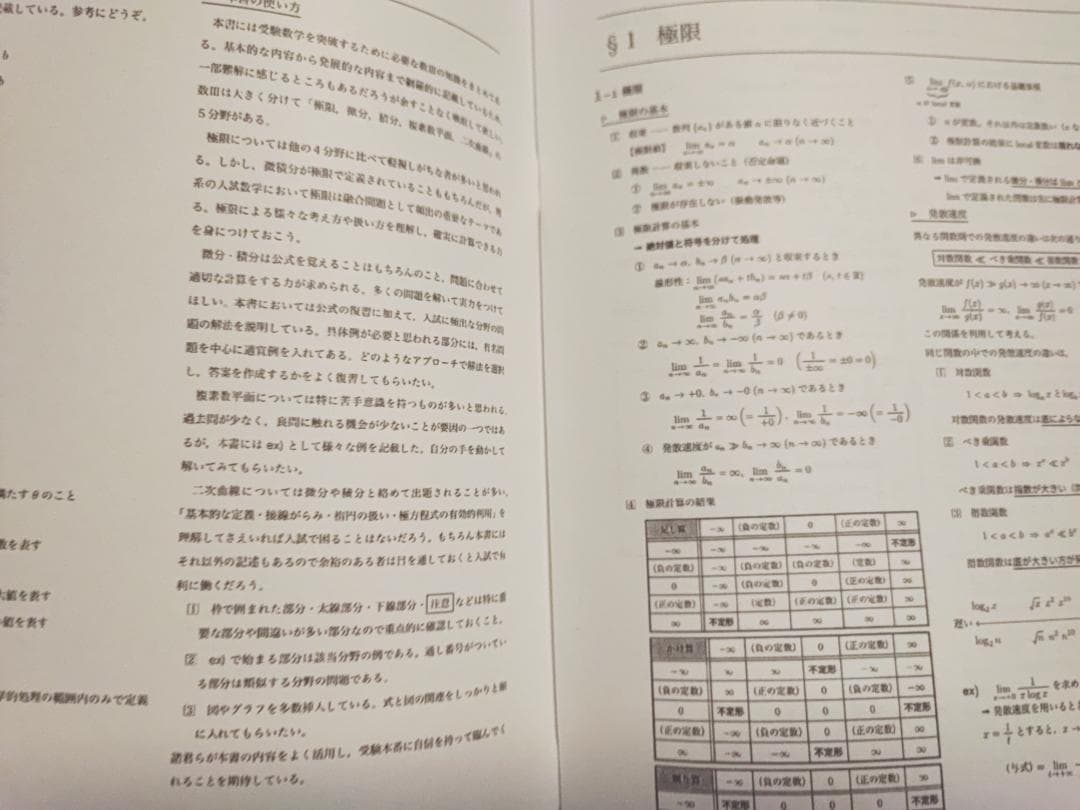 載している。参考にどうぞ。
の使い方
本書には受験数学を突破するために必要な数IIIの知識をまとめてあ
る。基本的な内容から発展的な内容まで網羅的に記載しているため、
一部難解に感じるところもあるだろうが余すことなく吸収して欲しい。
数IIIは大きく分けて「極限，微分，積分，複素数平面，二次曲線」の
５分野がある。
極限については他の４分野に比べて軽視しがちな者が多いと思われ
る。しかし、微積分が極限で定義されていることももちろんだが、理
系の入試数学において極限は融合問題として頻出の重要なテーマであ
る。極限による様々な考え方や扱い方を理解し、確実に計算できる力
を身につけておこう。
微分・積分は公式を覚えることはもちろんのこと、問題に合わせて
適切な計算をする力が求められる。多くの問題を解いて実力をつけて
ほしい。本書においては公式の復習に加えて、入試に頻出な分野の問
題の解法を説明している。具体例が必要と思われる部分には、有名問
題を中心に適宜例を入れてある。どのようなアプローチで解法を選択
し、答案を作成するかをよく復習してもらいたい。
複素数平面については特に苦手意識を持つものが多いと思われる。
過去問が少なく、良問に触れる機会が少ないことが要因の一つではあ
るが、本書には ex) として様々な例を記載した。自分の手を動かして
解いてみてもらいたい。
二次曲線については微分や積分と絡めて出題されることが多い。
「基本的な定義・接線がらみ・楕円の扱い・極方程式の有効的利用」を
理解してさえいれば入試で困ることはないだろう。もちろん本書には
それ以外の記述もあるので余裕のある者は目を通しておくと入試で有
利に働くだろう。
[1] 枠で囲まれた部分・太線部分・下線部分・注意などは特に重
要な部分や間違いが多い部分なので重点的に確認しておくこと。
[2] ex) で始まる部分は該当分野の例である。通し番号がついてい
る部分は類似する分野の問題である。
[3] 図やグラフを多数挿入している。式と図の関連をしっかりと頭
に入れてもらいたい。
諸君らが本書の内容をよく活用し、受験本番に自信を持って臨んでく
れることを期待している。
満たすθのこと
数を表す
大値を表す
小値を表す
学的処理の範囲内のみで定義
§1 極限
1－1 極限
▷ 極限の基本
[1] 収束 …… 数列 {aₙ} がある値 α に限りなく近づくこと
lim aₙ = α aₙ → α (n → ∞)
[2] 発散 …… 収束しないこと（否定命題）
① lim aₙ = ±∞ aₙ → ±∞ (n → ∞)
② 極限が存在しない（振動発散等）
[3] 極限計算の基本
➡ 絶対値と符号を分けて処理
① aₙ → α, bₙ → β (n → ∞) と収束するとき
線形性：lim (saₙ + tbₙ) = sα + tβ
lim aₙbₙ = αβ
lim aₙ/bₙ = α/β (β ≠ 0)
② aₙ → ∞, bₙ → −∞ (n → ∞) であるとき
lim 1/aₙ = lim 1/bₙ = 0 (1/±∞ = ±0 = 0)
③ aₙ → +0, bₙ → −0 (n → ∞) であるとき
lim 1/aₙ = ∞ (= 1/+0), lim 1/bₙ = −∞ (= 1/−0)
④ 発散速度が aₙ ≫ bₙ → ∞ (n → ∞) であるとき
lim aₙ/bₙ = ∞, lim bₙ/aₙ = 0
[4] 極限計算の結果
足し算 −∞ (負の定数) 0 (正の定数) ∞
−∞ −∞ −∞ −∞ −∞ 不定形
(負の定数) −∞ (負の定数) (負の定数) (定数) ∞
0 −∞ (負の定数) 0 (正の定数) ∞
(正の定数) −∞ (定数) (正の定数) (正の定数) ∞
∞ 不定形 ∞ ∞ ∞ ∞
かけ算 −∞ (負の定数) 0 (正の定数) ∞
−∞ ∞ ∞ 不定形 −∞ −∞
(負の定数) ∞ (正の定数) 0 (負の定数) −∞
0 不定形 0 0 0 不定形
(正の定数) −∞ (負の定数) 0 (正の定数) ∞
∞ −∞ −∞ 不定形 ∞ ∞
割り算 −∞ (負の定数) 0 (正の定数) ∞
−∞ 不定形 不定形
▷ 発散速度
異なる関数間での発散速度の違いは次の通り
対数関数 ≪ べき乗関数 ≪ 指数関数
発散速度が f(x) ≫ g(x) → ∞ (x → ∞)
lim f(x)/g(x) = ∞, lim g(x)/f(x) = 0
この関係を利用して考える。
同じ関数の中での発散速度の違いは、
[1] 対数関数
1 < a < b ⇒
対数関数の発散速度は底によらな
[2] べき乗関数
1 < a < b ⇒ xᵃ ≪ xᵇ
べき乗関数は指数が大きい
[3] 指数関数
1 < a < b ⇒ aˣ ≪ bˣ
指数関数は底が大きい方が
遅い
ex) lim 1/(x log x) を求め
➡ 発散速度を用いると
x = 1/t とすると、
(与式) = lim